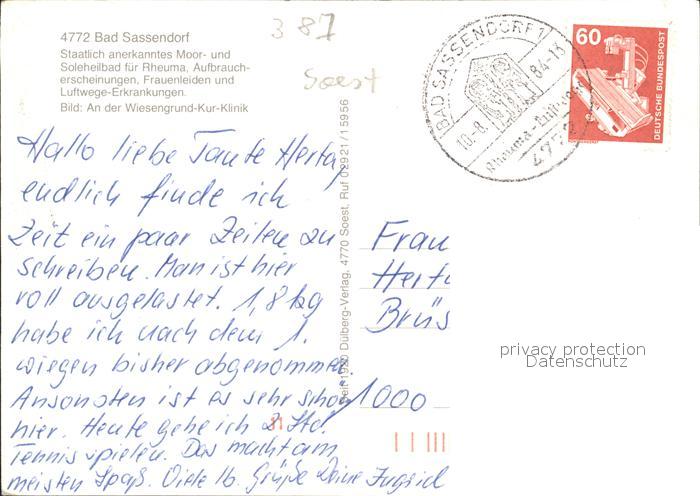 387
Soest
4772 Bad Sassendorf
Staatlich anerkanntes Moor- und
Soleheilbad für Rheuma, Aufbrauch-
erscheinungen, Frauenleiden und
Luftwege-Erkrankungen.
Bild: An der Wiesengrund-Kur-Klinik
BAD SASSENDORF 1
10.-8. 84-13
Rheuma-
477
60
DEUTSCHE BUNDESPOST
Hallo liebe Tante Herta,
endlich finde ich
Zeit ein paar Zeilen zu
schreiben. Man ist hier
voll ausgelastet. 1,8 kg
habe ich nach dem 1.
wiegen bisher abgenommen.
Ansonsten ist es sehr schön
hier. Heute gehe ich 2 Std.
Tennis spielen. Das macht am
meisten Spaß. Viele lb. Grüße Deine Ingrid
Seit 1920 Dülberg-Verlag, 4770 Soest, Ruf 02921/15956
Frau
Hert
Brüs
1000
privacy protection
Datenschutz